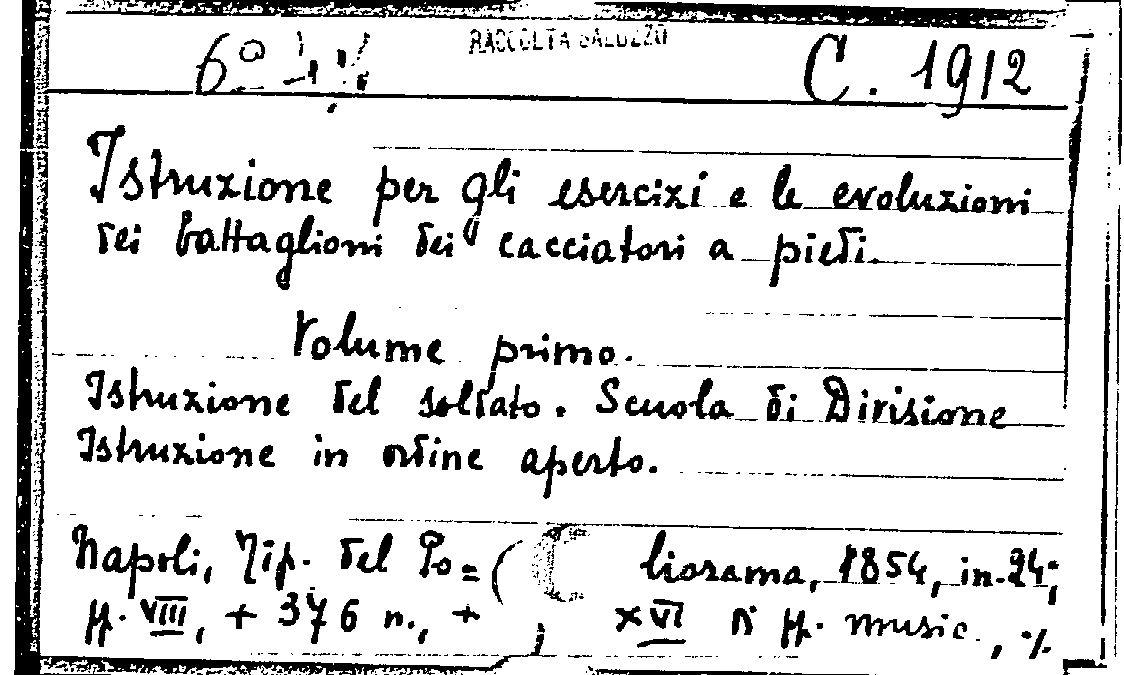 RACCOLTA SALUZZO
6ª C. 1912
Istruzione per gli esercizi e le evoluzioni
dei battaglioni dei cacciatori a piedi.
Volume primo.
Istruzione del soldato. Scuola di Divisione
Istruzione in ordine aperto.
Napoli, Tip. del Po= liorama, 1854, in-24;
pp. VIII, + 376 n., + XVI di pp. music., %